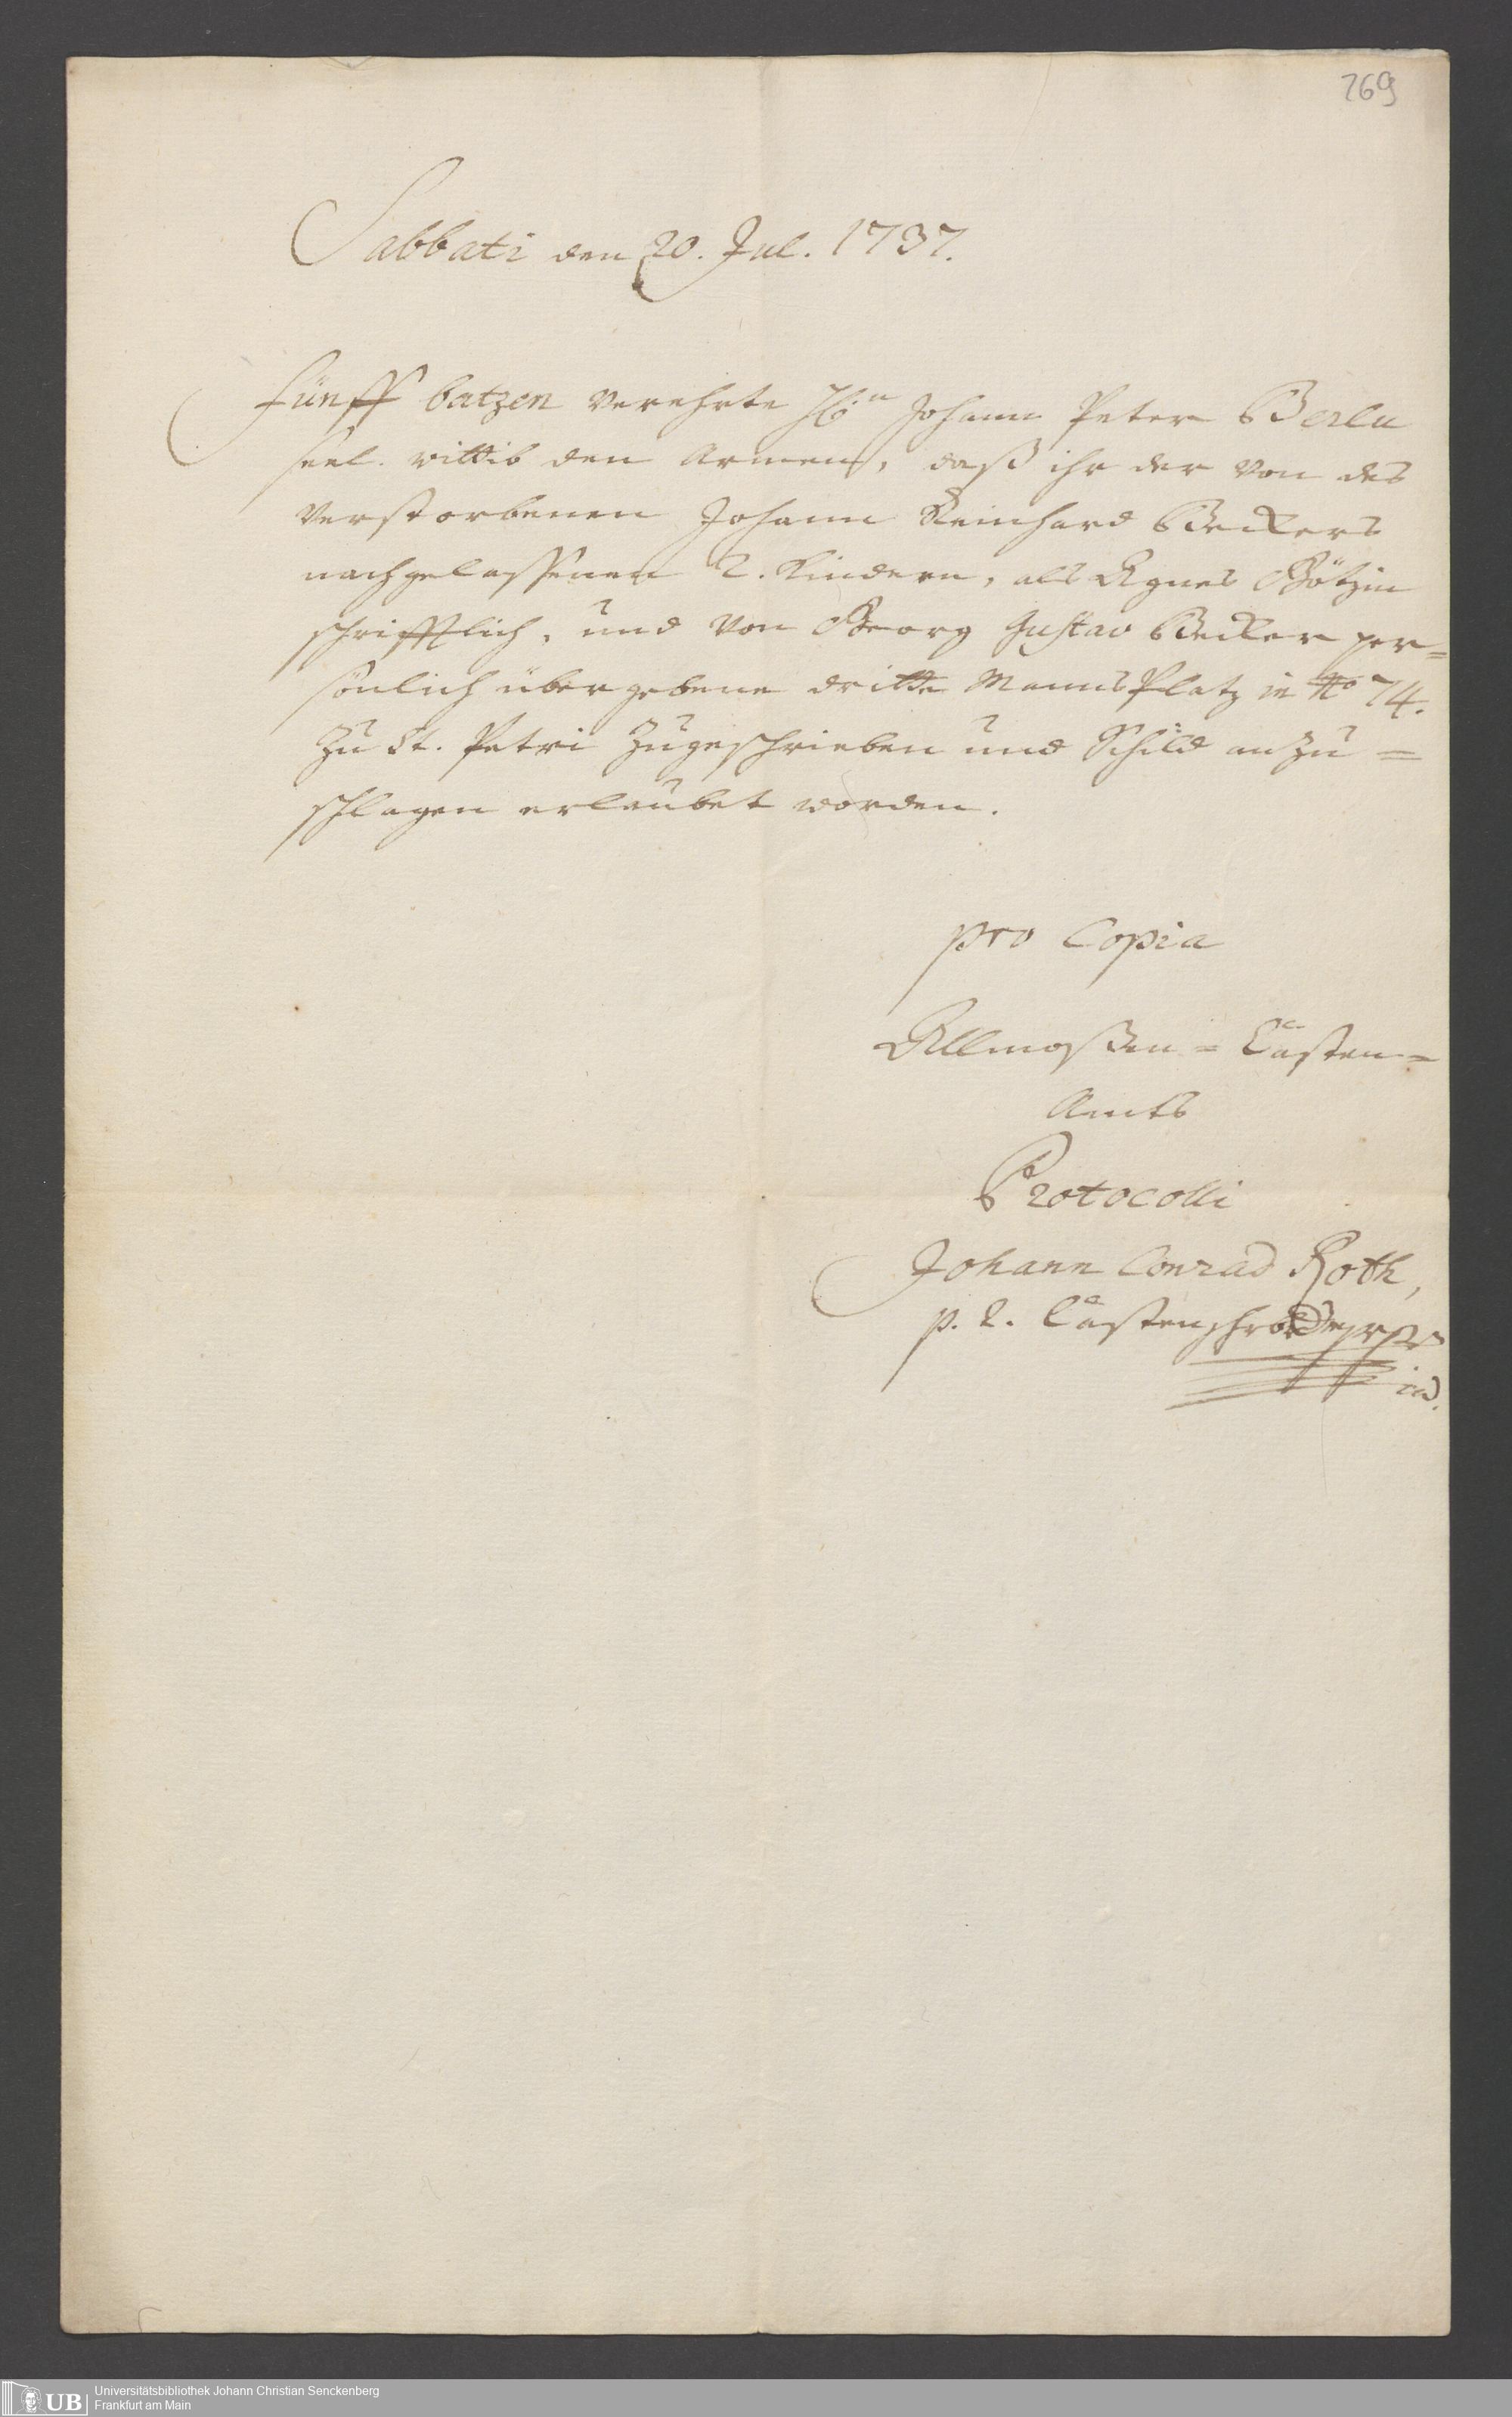 269
Sabbati den 20. Jul. 1737.
Fünff batzen verehrte Hn Johann Peter Berlu
seel. wittib den Armen, daß ihr der von des
verstorbenen Johann Reinhard Beckers
nachgelassenen 2. Kindern, als Agnes Götzin
schrifftlich, und von Georg Gustav Becker per=
sönlich übergebene dritte Manns Platz in No 74.
zu St. Petri zugeschrieben und Schild anzu=
schlagen erlaubet worden.
pro Copia
Allmoßen=Casten=
Amts
Protocolli
Johann Conrad Roth,
p. t.
Universitätsbibliothek Johann Christian Senckenberg
Frankfurt am Main
UB